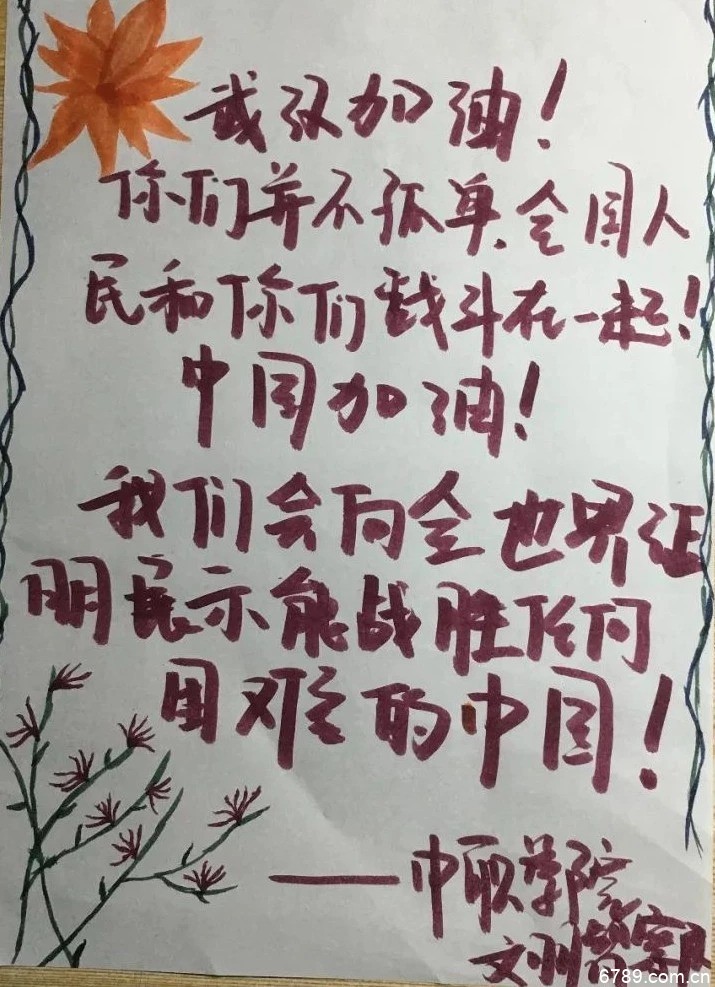 武汉加油！
你们并不孤单、全国人
民和你们战斗在一起！
中国加油！
我们会向全世界证
明展示能战胜任何
困难的中国！
——中职学院
6789.com.cn